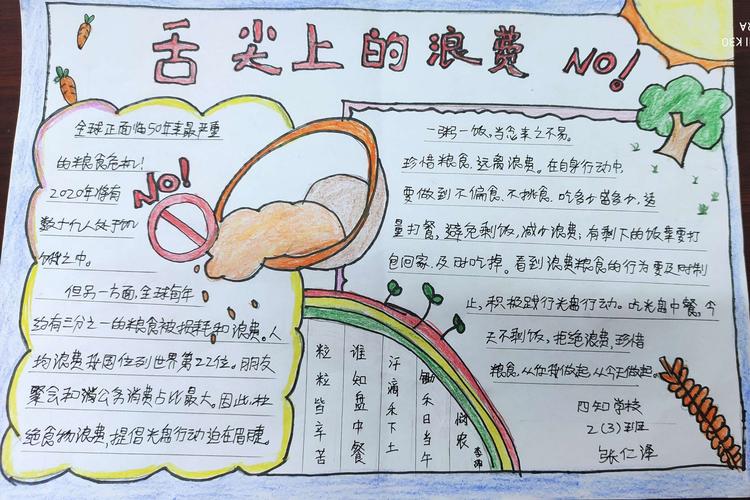 舌尖上的浪费 NO!
全球正面临50年来最严重
的粮食危机!
2020年将有
数十亿人处于饥
饿之中。
但另一方面,全球每年
约有三分之一的粮食被损耗和浪费。人
均浪费按国位列世界第22位。朋友
聚会和消公务消费占比最大。因此,杜
绝食物浪费,提倡光盘行动迫在眉睫。
NO!
一粥一饭,当念来之不易。
珍惜粮食,远离浪费。在自身行动中,
要做到不偏食,不挑食,吃多少盛多少,适
量打餐,避免剩饭,减少浪费;有剩下的饭拿要打
包回家,及时吃掉。看到浪费粮食的行为要及时制
止,积极践行光盘行动。吃光盘中餐,今
天不剩饭,拒绝浪费,珍惜
粮食,从你我做起,从今天做起。
四知学校
2(3)班
张仁泽
悯农
李绅
锄禾日当午
汗滴禾下土
谁知盘中餐
粒粒皆辛苦